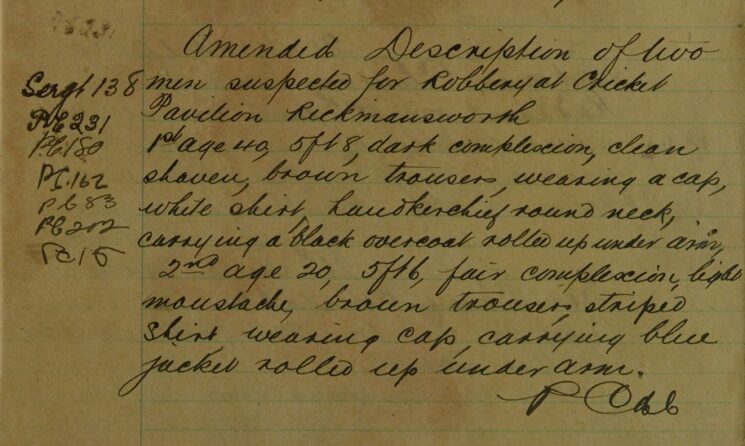 Amended Description of two
Sergt 138 men suspected for Robbery at Cricket
Pavilion Rickmansworth
P.C. 231
1st age 40, 5ft 8, dark complexion, clean
P.C. 180
shaven, brown trousers, wearing a cap,
P.C. 162
white shirt, handkerchief round neck,
P.C 83
P.C 202
carrying a black overcoat rolled up under arm,
P.C 15
2nd age 20, 5ft 6, fair complexion, light
moustache, brown trousers, striped
shirt, wearing cap, carrying blue
jacket rolled up under arm.